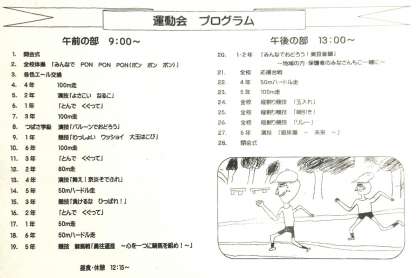 運動会 プログラム
午前の部 9:00~
1. 開会式
2. 全校体操 「みんなで PON PON PON(ポン ポン ポン)」
3. 各色エール交換
4. 4年 100m走
5. 2年 演技「よさこい なるこ」
6. 1年 「とんで くぐって」
7. 3年 100m走
8. つばさ学級 演技「バルーンでおどろう」
9. 1年 競技「わっしょい ワッショイ 大玉はこび」
10. 6年 100m走
11. 3年 「とんで くぐって」
12. 2年 80m走
13. 4年 演技「舞え!京炎そでふれ」
14. 5年 50mハードル走
15. 3年 競技「負けるな ひっぱれ!」
16. 2年 「とんで くぐって」
17. 1年 50m走
18. 6年 50mハードル走
19. 5年 競技 「 ~心を一つに勝馬を組め!~」
昼食・休憩 12:15~
午後の部 13:00~
20. 1・2年 「みんなでおどろう! 」
~地域の方・保護者のみなさんもご一緒に~
21. 全校 応援合戦
22. 4年 50mハードル走
23. 5年 100m走
24. 全校 縦割り競技 「玉入れ」
25. 全校 縦割り競技 「綱引き」
26. 全校 縦割り競技 「リレー」
27. 6年 演技 「組体操 ~ ~」
28. 閉会式